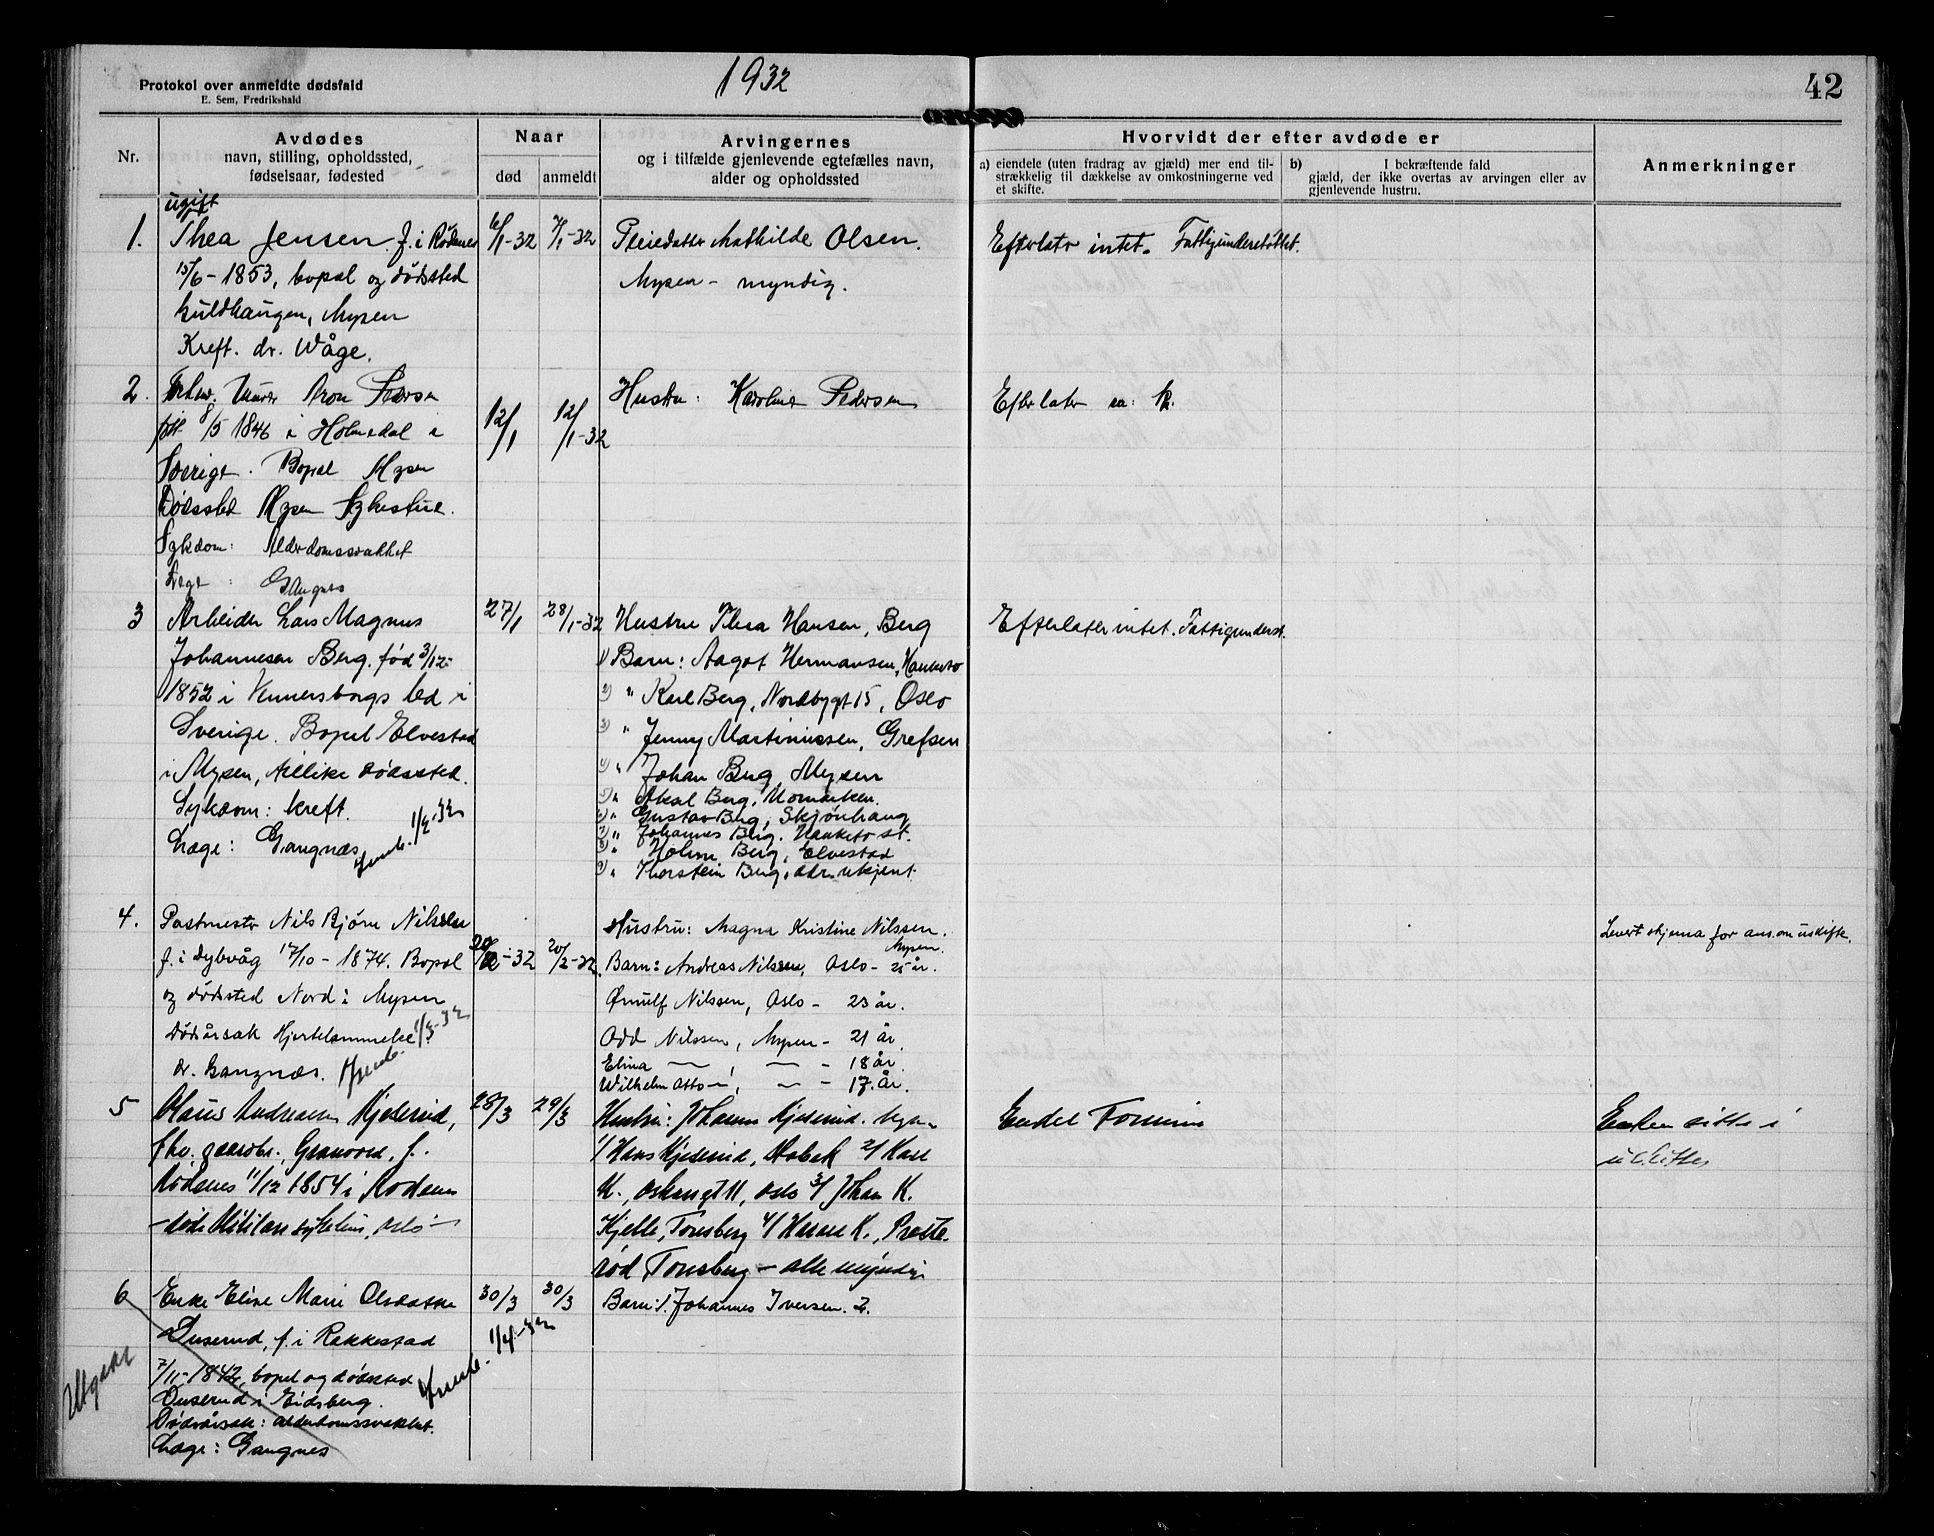 1932
42
Protokol over anmeldte dødsfald
E. Sem, Fredrikshald
Nr.
Avdødes
navn, stilling, opholdssted,
fødselsaar, fødested
Naar
død
anmeldt
Arvingernes
og i tilfælde gjenlevende egtefælles navn,
alder og opholdssted
Hvorvidt der efter avdøde er
a) eiendele (uten fradrag av gjæld) mer end til-
strækkelig til dækkelse av omkostningerne ved
et skifte.
b) I bekræftende fald
gjæld, der ikke overtas av arvingen eller av
gjenlevende hustru.
Anmerkninger
ugift
1. Thea Jensen f. i Rødenes
15/6 - 1853, bopæl og dødsted
Mysen
Kreft. dr. Wåge.
6/1-32
7/1-32
Pleiedatter Mathilde Olsen.
Mysen - myndig.
Efterlater intet. Fattigunderstøttet.
2. Aron Pedersen
født 8/5 1846 i Holmedal i
Sverige. Bopæl Mysen
Dødssted Mysen Sykestue.
Sykdom: Alderdomssvakhet
Læge: Gangnes
12/1
12/1-32
Hustru: Karoline Pedersen
Efterlater
3 Arbeider Lars Magnus
Johannesen Berg. fød 3/12-
1852 i Vennersborgs led i
Sverige. Bopæl Elvestad
i Mysen, dødssted.
Sykdom: kreft.
Læge: Gangnæs
1/2-32
27/1
28/1-32
Hustru Thea Hansen, Berg
1) Barn: Aagot Hermansen, Hauketo
2) " Karl Berg, Nordbygt 15, Oslo
3) " Jenny Martiniussen, Grefsen
4) " Johan Berg, Mysen
5) " Berg, Momarken.
6) " Gustav Berg, Skjønhaug
7) " Johannes Berg. Hauketo st.
8) " Holm Berg, Elvestad
9) " Thorstein Berg, adr. ukjent.
Efterlater intet. Fattigunderst.
4. Postmester Nils Bjørn Nilssen
f. i Dybvåg 17/10 - 1874. Bopæl
og dødsted Nord i Mysen
Dødsårsak Hjertelammelse
dr. Gangnæs.
1/3-32
20/2-32
20/2-32.
Hustru: Magna Kristine Nilssen.
Mysen.
Barn: Andreas Nilssen, Oslo - 25 år.
Ørnulf Nilssen, Oslo - 23 år.
Odd Nilssen, Mysen - 21 år.
Elina — , — - 18 år
Wilhelm Otto — , — - 17 år.
Levert skjema for ans. om uskifte.
5 Olaus Andreassen Kjeserud,
fhv. gaardbr., f.
Rødenes 11/12 1854 i Rødenes
- døde Militære sykehus, Oslo -
28/3
29/3
Hustru: Kjeserud.
1/ Hans Kjeserud, 2/ Karl
K., Oslo 3/ Johan K.
Kjelle, Tønsberg 4/ K., Preste-
rød Tønsberg - alle myndige
Endel Formue
Enken sitter i
uskiftet
6 Enke Elise Marie Olsdatter
Duserud, f. i Rakkestad
7/11-1842, bopæl og dødsted
Duserud i Eidsberg.
Dødsårsak: alderdomssvakhet.
Læge: Gangnes
Utgaar
30/3
30/3
1/4-32
Barn: 1. Johannes Iversen. 2.